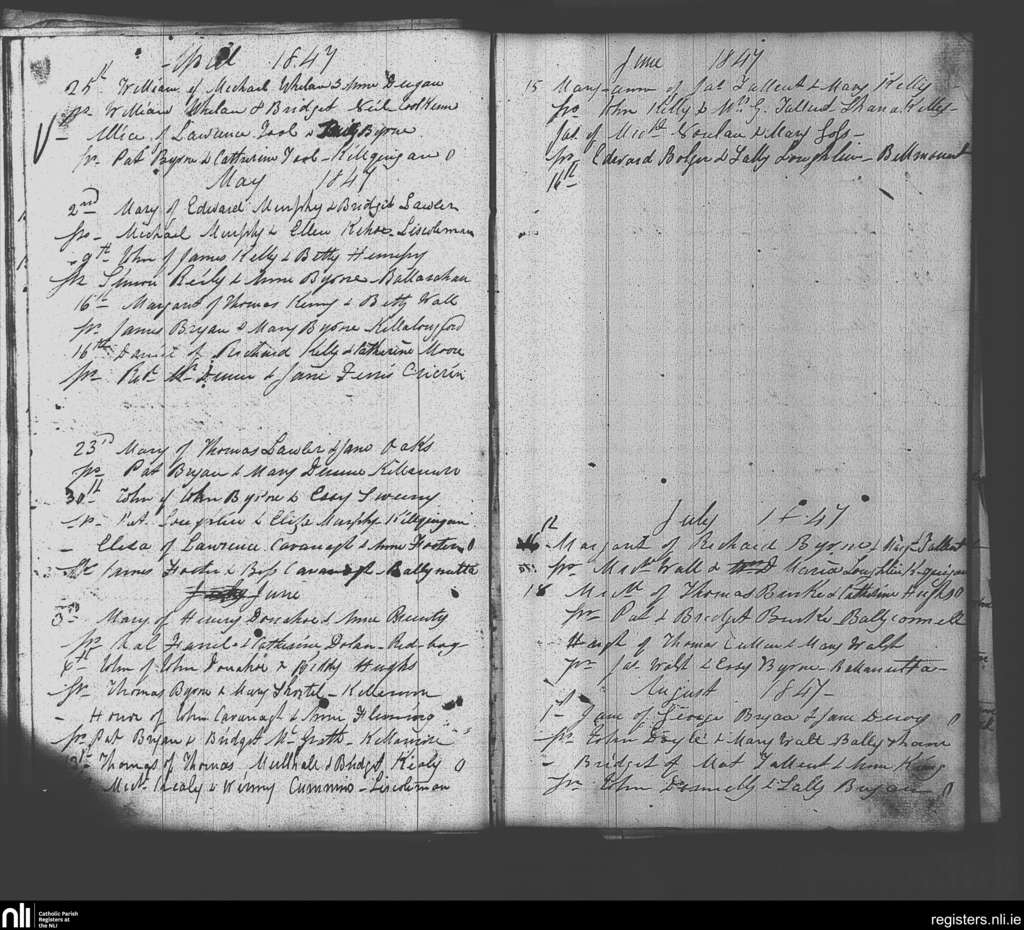 April 1847
25th William of Michael Whelan & Anne Deegan
sps William Whelan & Bridget Neil
- Alice of Lawrence Tool & Byrne
sps Pat Byrne & Catherine Tool - Killgingan 0
May 1847
2nd Mary of Edward Murphy & Bridget Lawler
sps - Michael Murphy & Ellen Kehoe - Liscoleman
- 9th John of James Kelly & Betty
sps Simon Reily & Anne Byrne
16th Margaret of Thomas Kenny & Betty Wall
sps James Bryan & Mary Byrne Killalongford
16th Daniel of Richard Kelly & Catherine Moore
sps & Jane
23rd Mary of Thomas Lawler & Jane Oaks
sps Pat Bryan & Mary Killamure
30th John of John Byrne & Essy Sweeny
sps Pat Loughlin & Eliza Murphy Killgingan
- Elisa of Lawrence Cavanagh & Anne Foster 0
James Foster & Cavanagh - Ballynutta
June
3rd Mary of Henry Donahoe & Anne
sps & Catherine Dolan - Red-bog
6th John of John Donahoe & Biddy Hughs
sps Thomas Byrne & Mary - Killamure
- Honor of John Cavanagh & Anne Flemming
sps Pat Bryan & Bridget Mc Grath - Killamure
Thomas of Thomas Mulhall & Bridget Kealy 0
Mick Kealy & Winny Cummins - Liscoleman
June 1847
15 Mary-ann of Jas Tallent & Mary Kelly -
sps John Kelly & Mrs G. Tallent Shana Kelly -
Jas of Mick Nowlan & Mary Goss -
sps Edward Bolger & Sally Loughlin - Bellmount
16th
July 1847
Margaret of Richard Byrne & Tallent
sps Mick Wall & Maria Loughlin
18 Mick of Thomas Burke & Catherine Hughs 0
sps Pat & Bridget Burke Ballyconnell
Hugh of Thomas Cullen & Mary Walsh
sps Jas Walsh & Essy Byrne - Ballanutta -
August 1847 -
1st - Jane of George Bryan & Jane 0
sps John Doyle & Mary Wall
- Bridget of Mat Tallent & Anne King
sps John Donnelly & Sally Bryan 0
nli
Catholic Parish
Registers at
the NLI
registers.nli.ie